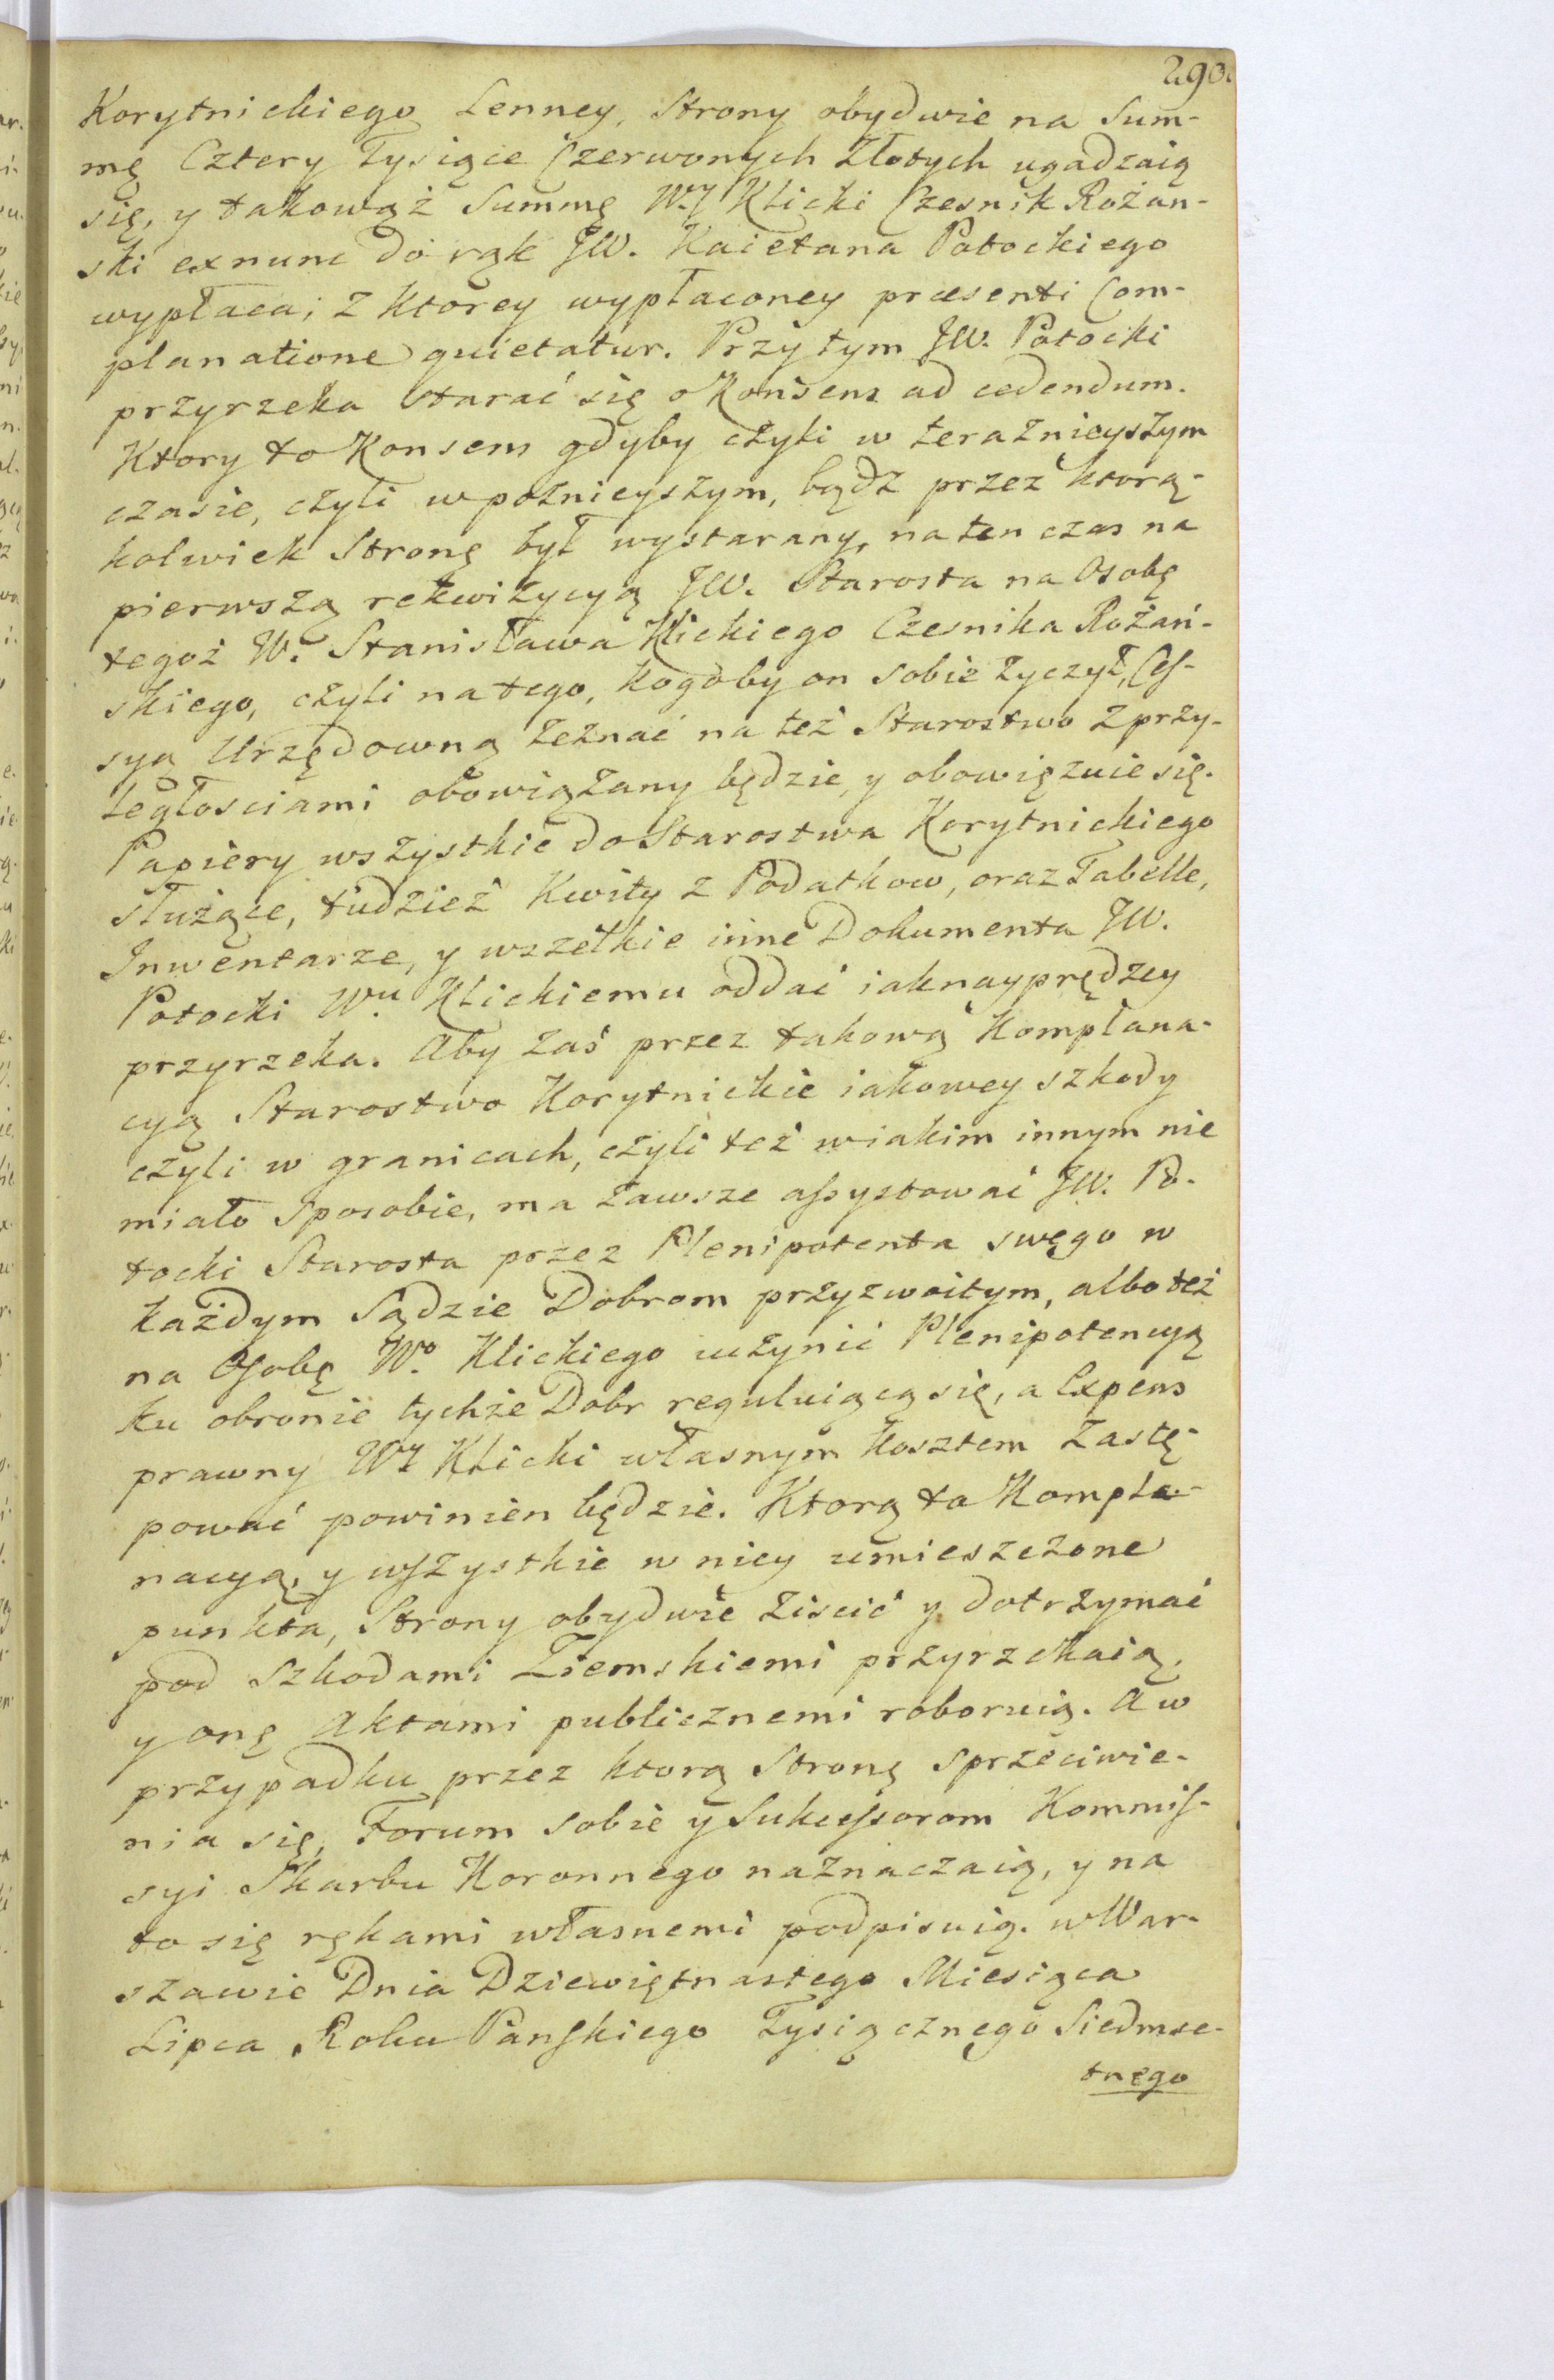 290.
Korytnickiego Lenney, Strony obydwie na Sum-
mę Cztery Tysiące Czerwonych Złotych ugadzaią
się, y takowąż Summę W.ʸ Klicki Czesnik Rożan-
ski exnunc do rąk JW. Kaietana Potockiego
wypłaca; z ktorey wypłaconey præsenti Com-
planatione quietatur. Przy tym JW. Potocki
przyrzeka starać się o Konsens ad cedendum.
Ktory to Konsens gdyby czyli w teraznieyszym
czasie, czyli w poznieyszym, bądz przez ktorą-
kolwiek Stronę był wystarany, na ten czas na
pierwszą rekwizycyą JW. Starosta na Osobę
tegoż W.º Stanisława Klickiego Czesnika Rożań-
skiego, czyli na tego, kogoby on sobie życzył, Ceſ-
syą Urzędowną zeznać na też Starostwo z przy-
ległosciami obowiązany będzie, y obowięzuie się.
Papiery wszystkie do Starostwa Korytnickiego
służące, tudzież Kwity z Podatkow, oraz Tabelle,
Inwentarze, y wszelkie inne Dokumenta JW.
Potocki W.ᵘ Klickiemu oddać iaknayprędzey
przyrzeka. Aby zaś przez takową Komplana-
cyą Starostwo Korytnickie iakowey szkody
czyli w granicach, czyli też w iakim innym nie
miało sposobie, ma zawsze aſsystować JW. Po-
tocki Starosta przez Plenipotenta swego w
każdym Sądzie Dobrom przyzwoitym, albo też
na Osobę W.º Klickiego uczynić Plenipotencyą
ku obronie tychże Dobr reguluiącą się, a Expens
prawny W.ʸ Klicki własnym kosztem zastę-
pować powinien będzie. Ktorą to Kompla-
nacyą, y wſzystkie w niey umieszczone
punkta, Strony obydwie ziscić y dotrzymać
pod szkodami Ziemskiemi przyrzekaią,
y onę Aktami publicznemi roboruią. A w
przypadku przez ktorą Stronę sprzeciwie-
nia się, Forum sobie y Sukceſsorom Kommiſ-
syi Skarbu Koronnego naznaczaią, y na
to się rękami własnemi podpisuią. w War-
szawie Dnia Dziewiętnastego Miesiąca
Lipca Roku Panſkiego Tysiącznego Siedmse-
tnego